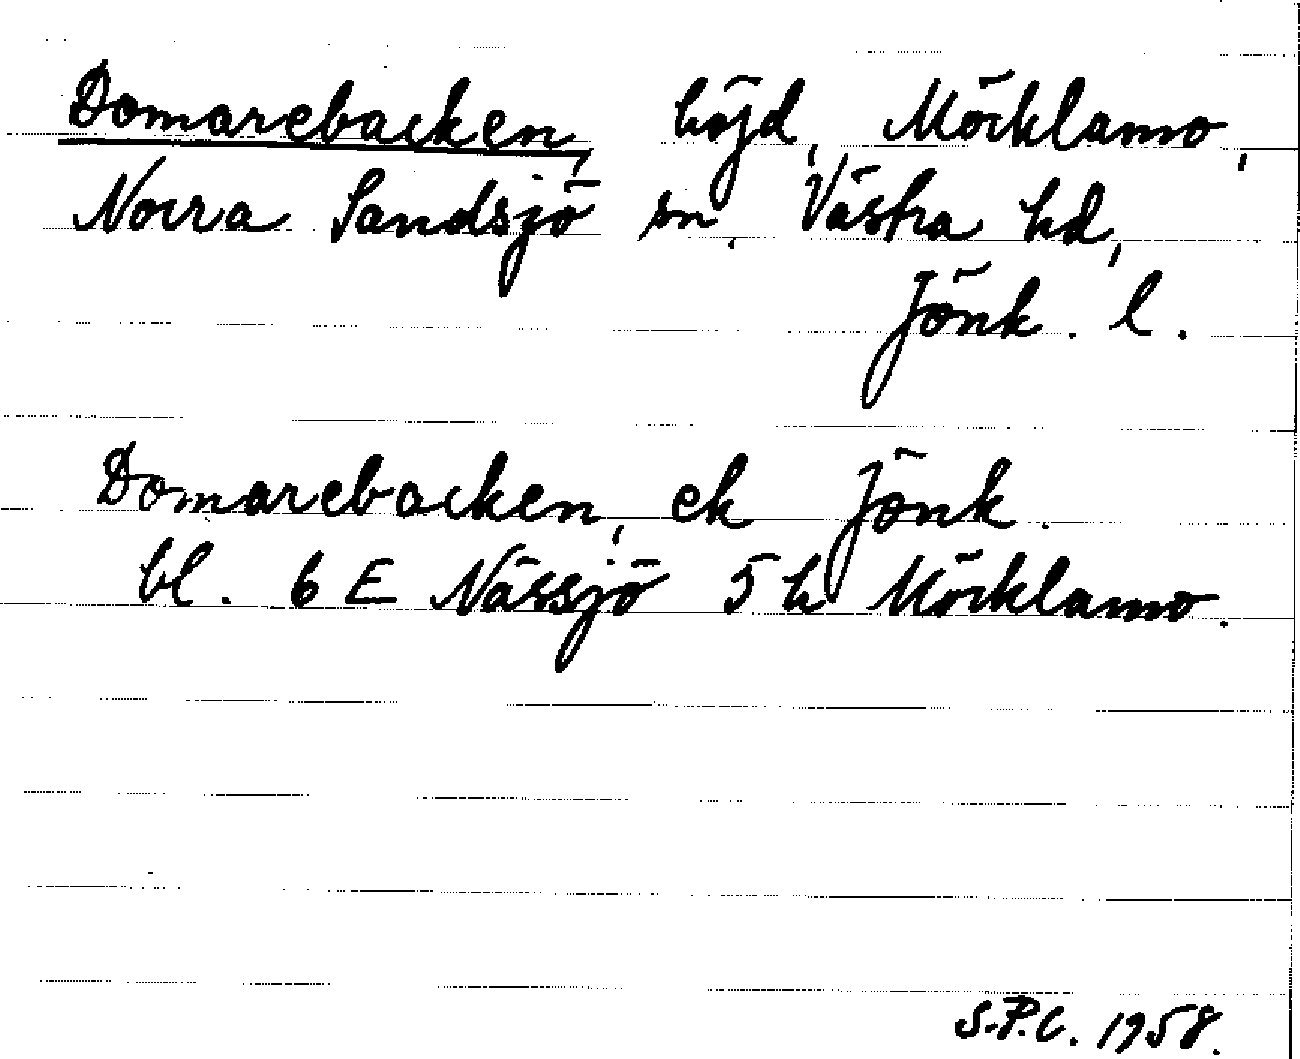 Domarebacken, höjd, Möcklamo,
Norra Sandsjö sn, Västra hd,
Jönk. l.
Domarebacken, ek Jönk.
bl. 6 E Nässjö 5 h Möcklamo.
S.P.C. 1958.